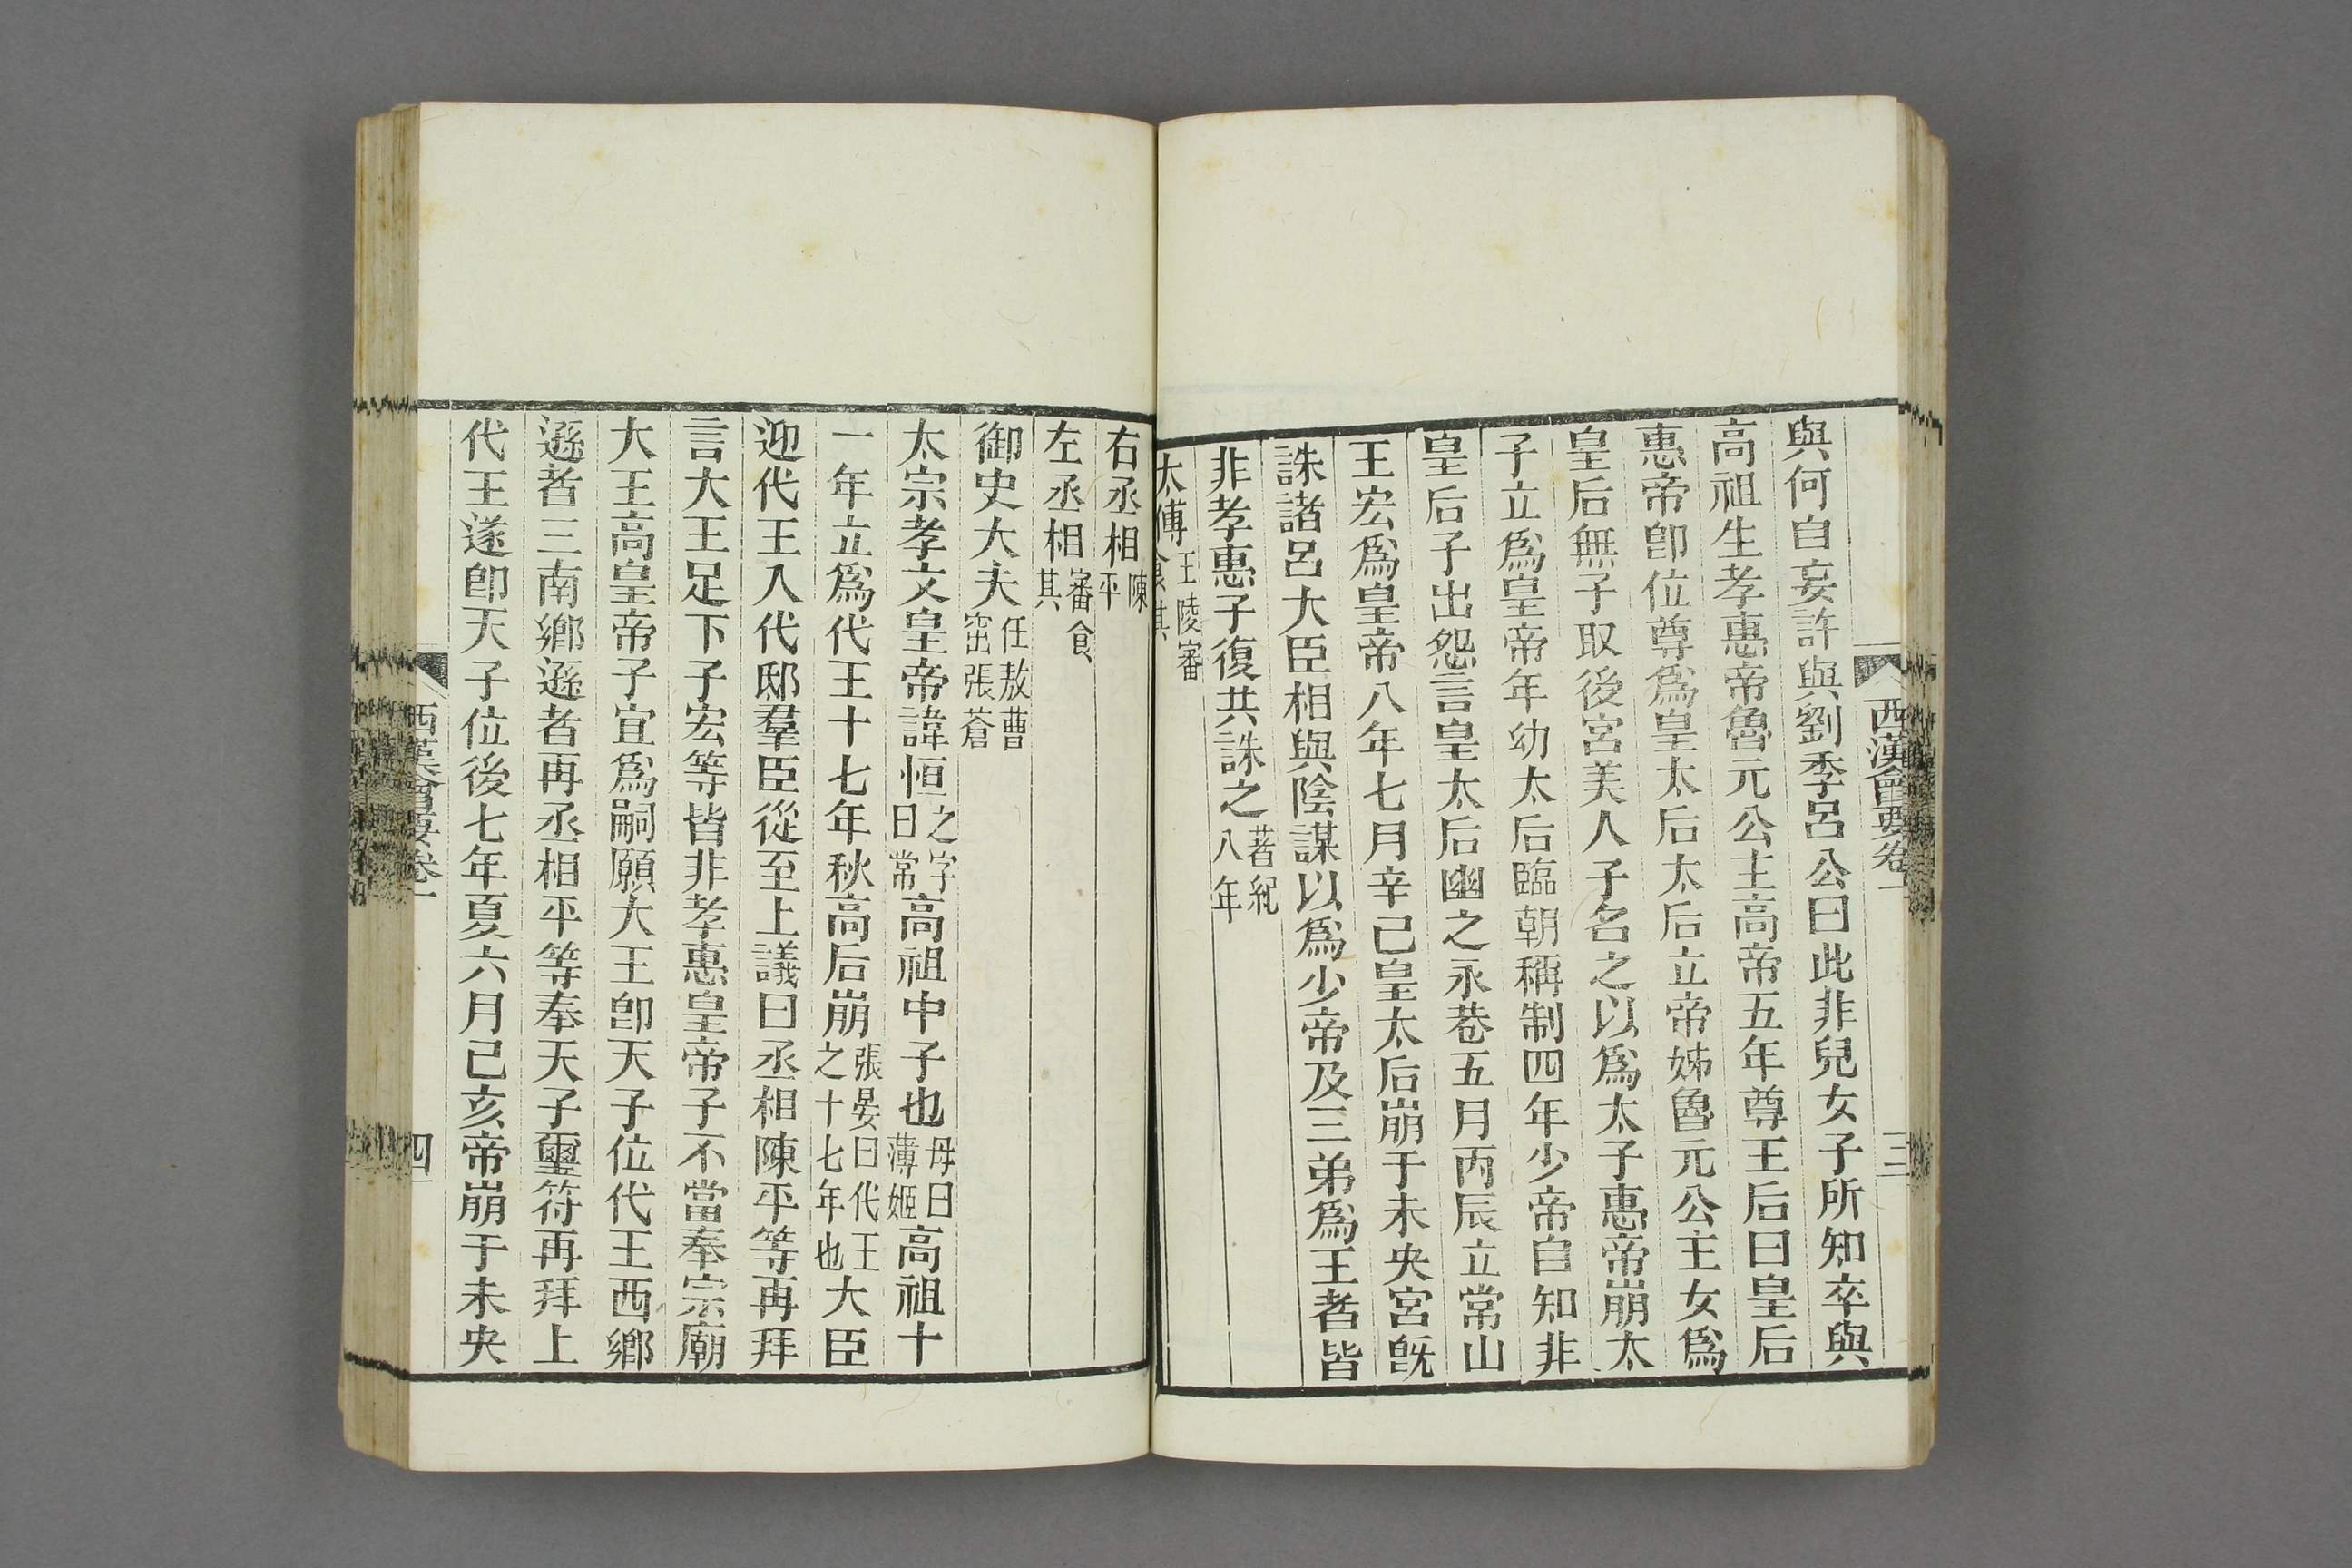 西漢會要卷一
三
與何自妄許與劉季呂公曰此非兒女子所知卒與
高祖生孝惠帝魯元公主高帝五年尊王后曰皇后
惠帝卽位尊爲皇太后太后立帝姊魯元公主女爲
皇后無子取後宮美人子名之以爲太子惠帝崩太
子立爲皇帝年幼太后臨朝稱制四年少帝自知非
皇后子出怨言皇太后幽之永巷五月丙辰立常山
王宏爲皇帝八年七月辛己皇太后崩于未央宮旣
誅諸呂大臣相與陰謀以爲少帝及三弟爲王者皆
非孝惠子復共誅之著紀八年
太傅王陵審食其
右丞相陳平
左丞相審食其
御史大夫任敖曹窋張蒼
太宗孝文皇帝諱恒之字曰常高祖中子也母曰薄姬高祖十
一年立爲代王十七年秋高后崩張晏曰代王之十七年也大臣
迎代王入代邸羣臣從至上議曰丞相陳平等再拜
言大王足下子宏等皆非孝惠皇帝子不當奉宗廟
大王高皇帝子宜爲嗣願大王卽天子位代王西鄉
遜者三南鄉遜者再丞相平等奉天子璽符再拜上
代王遂卽天子位後七年夏六月己亥帝崩于未央
西漢會要卷一
四